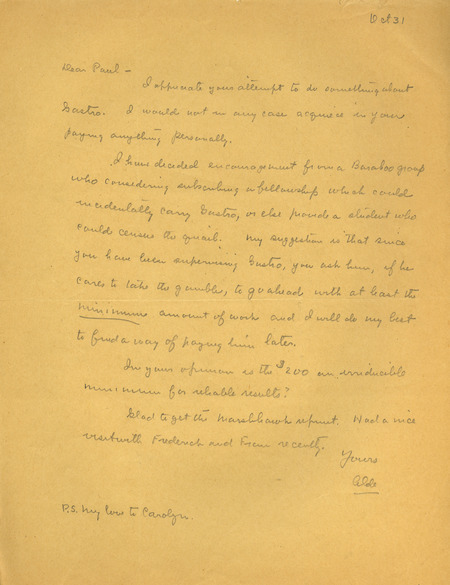 Oct 31
Dear Paul -
I appreciate your attempt to do something about
Gastro. I would not in any case acquiesce in your
paying anything personally.
I have decided encouragement from a Baraboo group
who considering subscribing a fellowship which could
incidentally carry Gastro, or else provide a student who
could census the quail. My suggestion is that since
you have been supervising Gastro, you ask him, if he
cares to take the gamble, to go ahead with at least the
minimum amount of work and I will do my best
to find a way of paying him later.
In your opinion is the $200 an irreducible
minimum for reliable results?
Glad to get the Marshhawk reprint. Had a nice
visit with Frederick and Fran recently.
Yours
Aldo
P.S. My love to Carolyn.